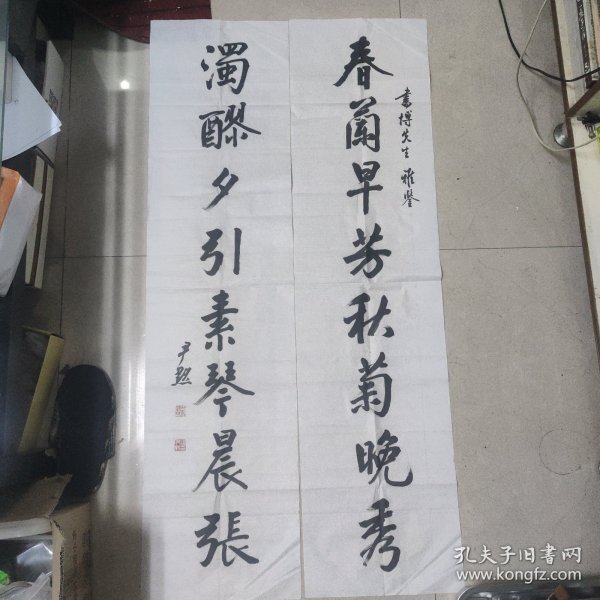 春蘭早芳秋菊晚秀
書博先生 雅鑒
濁醪夕引素琴晨張
尹默
孔夫子旧書网
www.kongfz.com